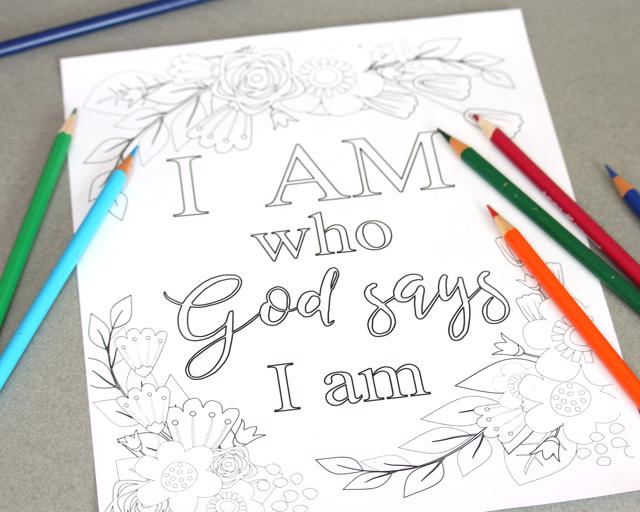 I AM
who
God says
I am